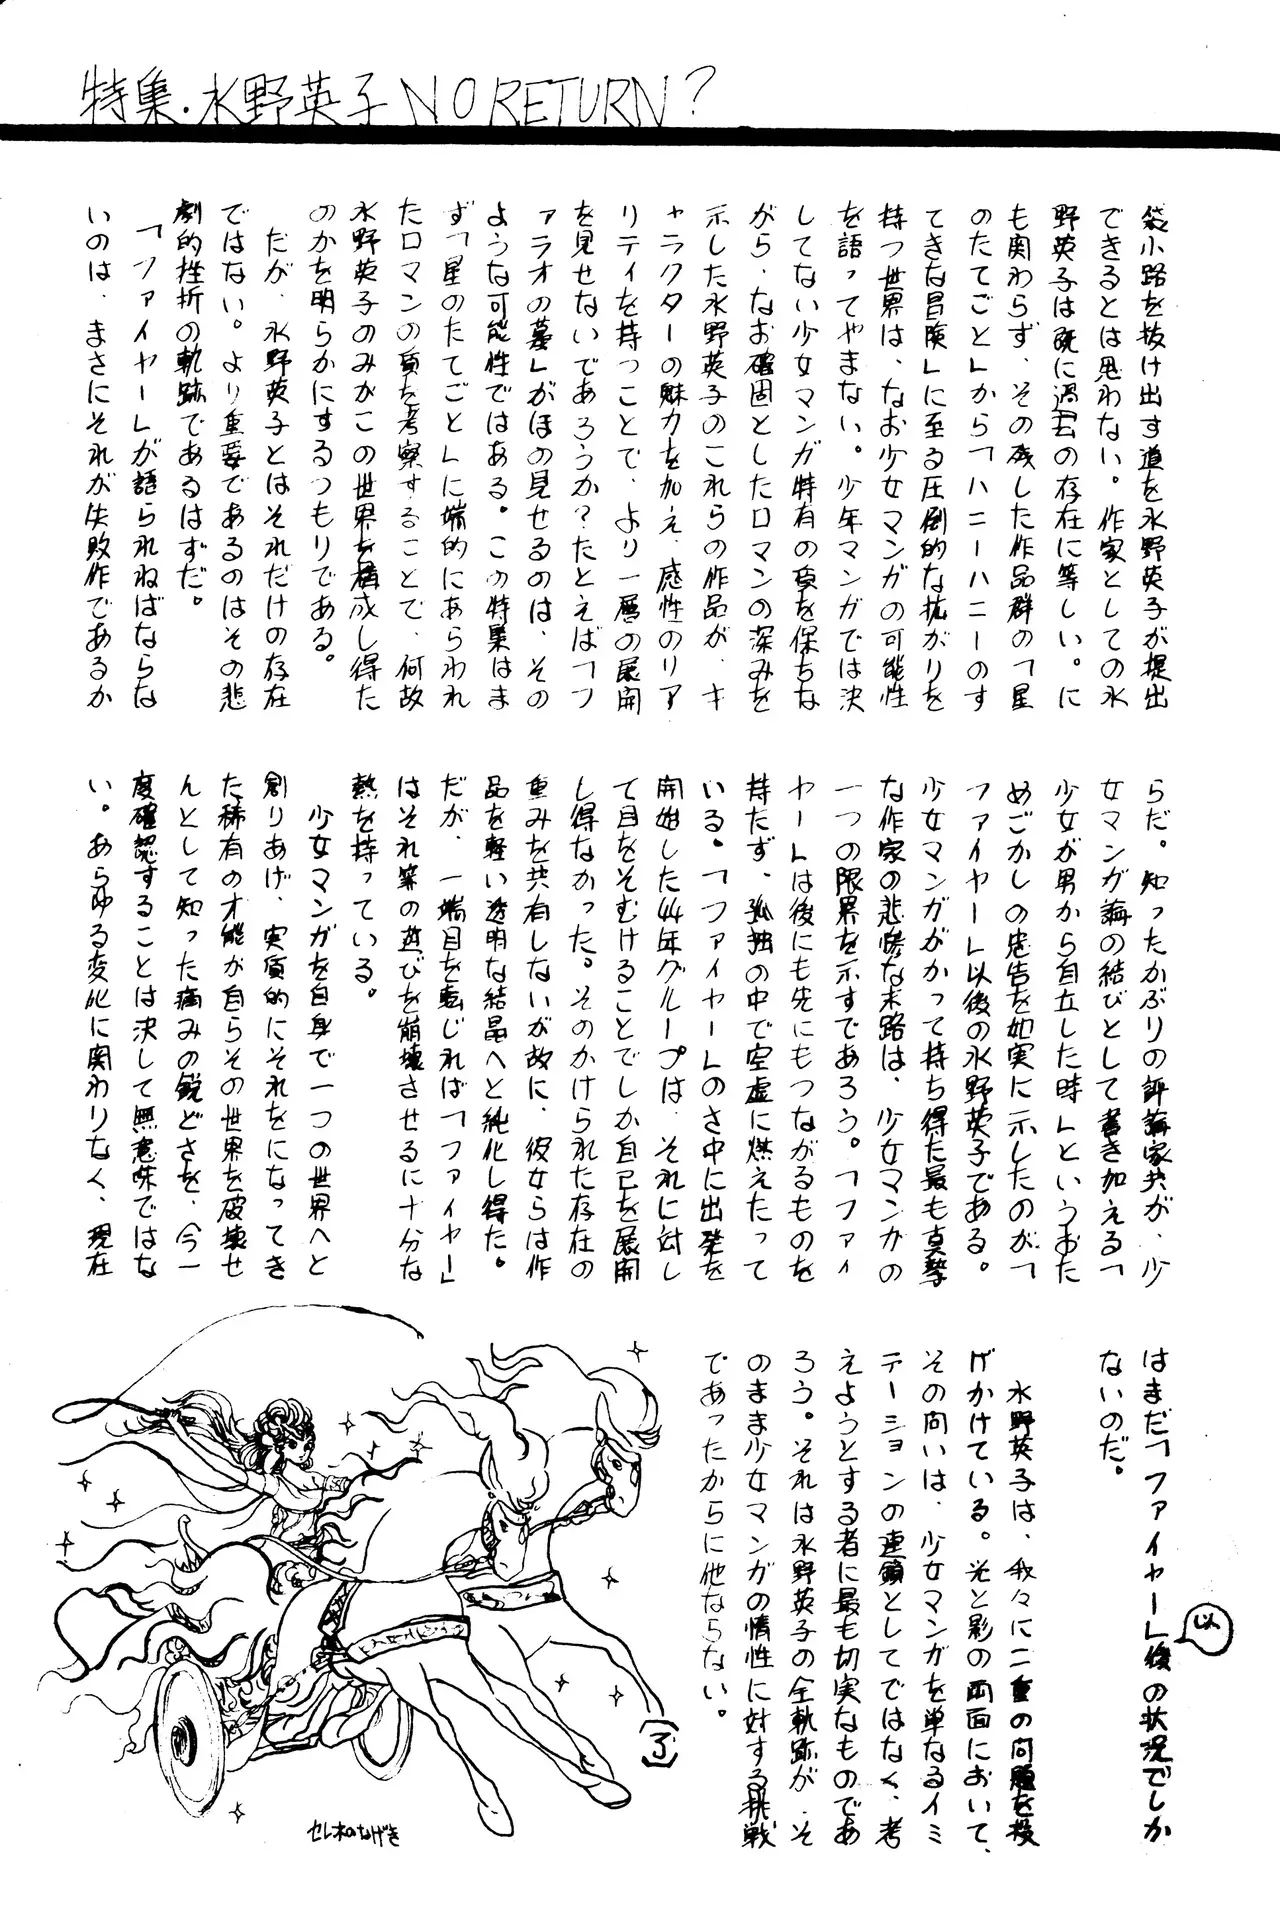 特集・水野英子 NO RETURN?
袋小路を抜け出す道を水野英子が提出
できるとは思わない。作家としての水
野英子は既に過去の存在に等しい。に
も関わらず、その残した作品群の「星
のたてごと」から「ハニーハニーのす
てきな冒険」に至る圧倒的な拡がりを
持つ世界は、なお少女マンガの可能性
を語ってやまない。少年マンガでは決
してない少女マンガ特有の項を保ちな
がら、なお確固としたロマンの深みを
示した水野英子のこれらの作品が、キ
ャラクターの魅力を加え、感性のリア
リティを持つことで、より一層の展開
を見せないであろうか?たとえば「フ
ァラオの墓」がほの見せるのは、その
ような可能性ではある。この特集はま
ず「星のたてごと」に端的にあらわれ
たロマンの質を考察することで、何故
水野英子のみがこの世界を構成し得た
のかを明らかにするつもりである。
だが、水野英子とはそれだけの存在
ではない。より重要であるのはその悲
劇的挫折の軌跡であるはずだ。
「ファイヤー」が語られねばならな
いのは、まさにそれが失敗作であるか
らだ。知ったかぶりの評論家共が、少
女マンガ論の結びとして書き加える「
少女が男から自立した時」というおた
めごかしの忠告を如実に示したのが「
ファイヤー」以後の水野英子である。
少女マンガがかって持ち得た最も真摯
な作家の悲惨な末路は、少女マンガの
一つの限界を示すであろう。「ファイ
ヤー」は後にも先にもつながるものを
持たず、孤独の中で空虚に燃えたって
いる。「ファイヤー」のさ中に出発を
開始した24年グループは、それに対し
て目をそむけることでしか自己を展開
し得なかった。そのかけられた存在の
重みを共有しないが故に、彼女らは作
品を軽い透明な結晶へと純化し得た。
だが、一端目を転じれば「ファイヤー」
はそれ等の遊びを崩壊させるに十分な
熱を持っている。
少女マンガを自身で一つの世界へと
創りあげ、実質的にそれをになってき
た稀有の才能が自らその世界を破壊せ
んとして知った痛みの鋭どさを、今一
度確認することは決して無意味ではな
い。あらゆる変化に関わりなく、現在
はまだ「ファイヤー」以後の状況でしか
ないのだ。
水野英子は、我々に二重の問題を投
げかけている。光と影の両面において、
その問いは、少女マンガを単なるイミ
テーションの連鎖としてではなく、考
えようとする者に最も切実なものであ
ろう。それは水野英子の全軌跡が、そ
のまま少女マンガの惰性に対する挑戦
であったからに他ならない。
(了)
セレネのなげき